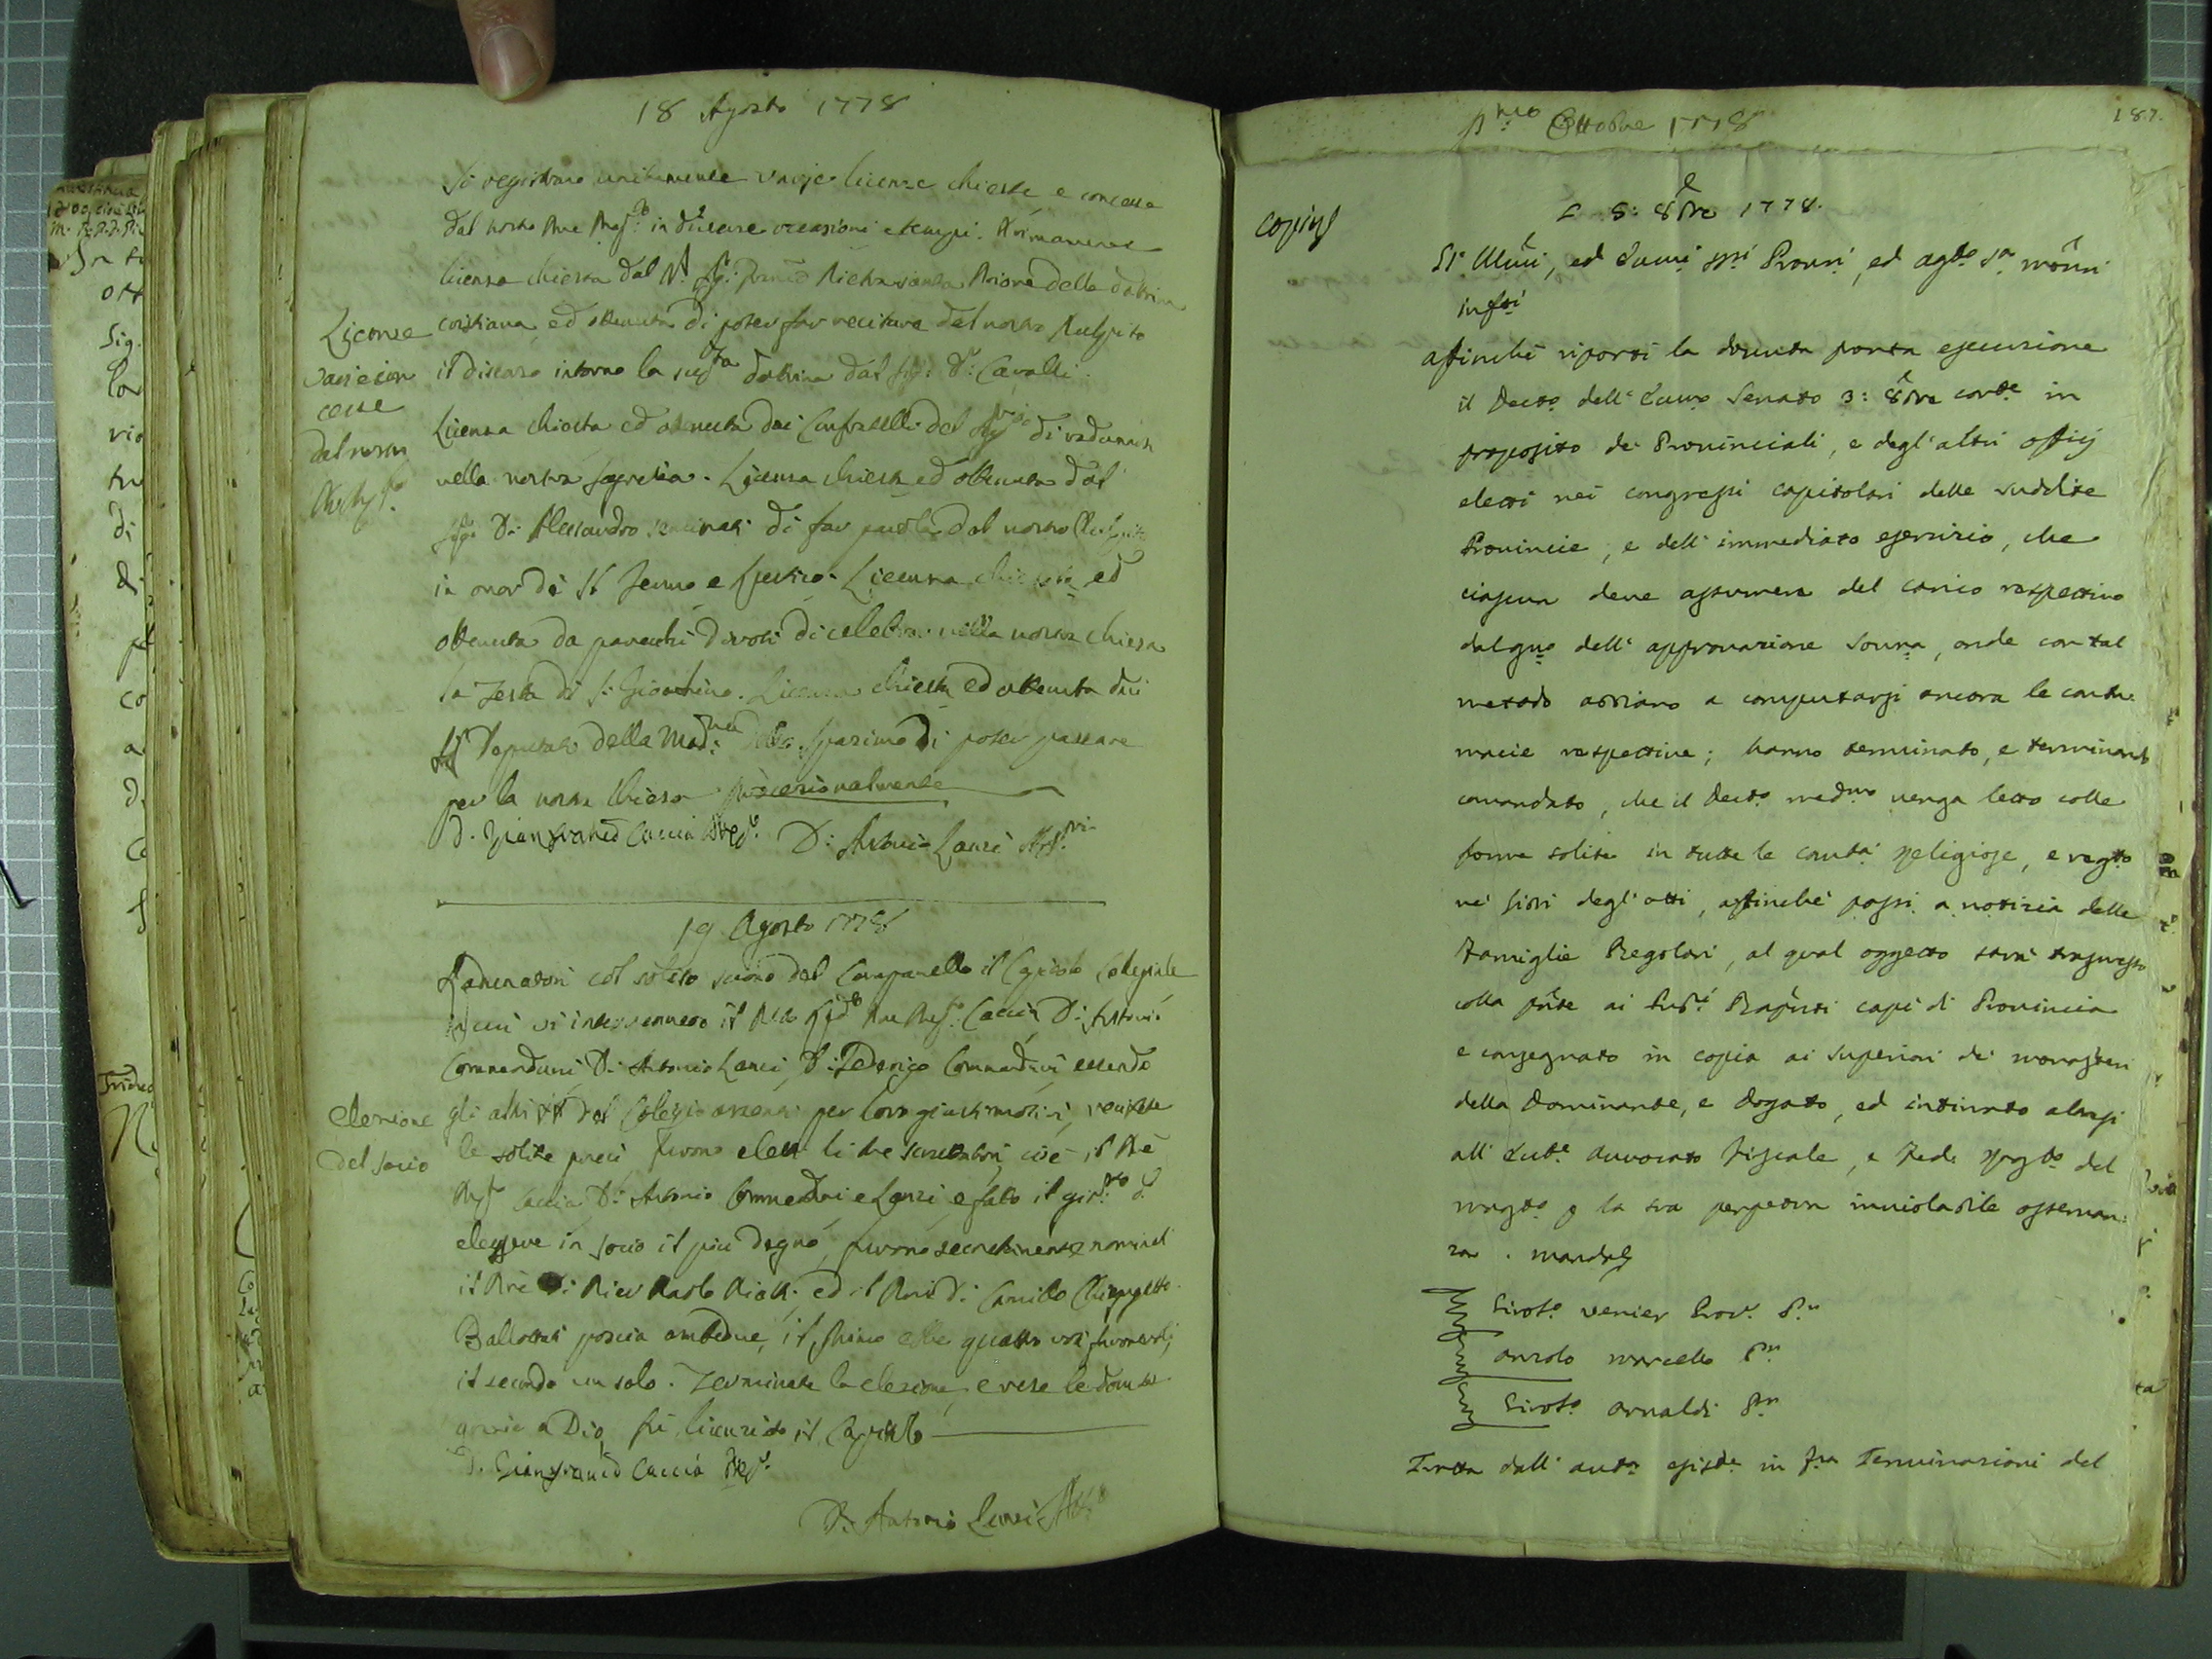 18 Agosto 1778
Si registrano unitamente varie licenze chieste, e concesse
dal nostro Pre in diverse occasioni e tempi. Primamente
licenza chiesta dal Priore della dottrina
Licenze
cristiana, ed ottenuta di poter far recitare dal nostro Pulpito
varie con
il discorso intorno la sudta dottrina dal Sig: Dr: Cavalli.
cesse
Licenza chiesta ed ottenuta dai Confratelli del di radunarsi
dal nostro
nella nostra Sagrestia. Licenza chiesta ed ottenuta dal
Sigr D: Alessandro di far dal nostro
in onor di St Fermo e Rustico. Licenza chiesta ed
ottenuta da parecchi Divoti di celebrar nella nostra Chiesa
la festa di S: Gioachino. Licenza chiesta ed ottenuta dai
Deputati della Madna dello Spasimo di poter passare
per la nostra Chiesa processionalmente
D. Gianfrancco Caccia D: Antonio Lanzi
19 Agosto 1778
Radunatosi col solito suono del Campanello il Capitolo Colegiale
in cui vi intervennero il Caccia, D: Antonio
Commenduni D: Antonio Lanzi, D: Federigo Commenduni essendo
Elezione
gli altri del Colegio assenti per loro giusti motivi, recitate
del socio
le solite preci furono eletti li tre scrutatori, cioè il Pre
Caccia D: Antonio Commenduni e Lanzi e fatto il girto d'
eleggere in socio il più degno, furono secretamente nominati
il Pre D: Pier Paolo ed il Pre D: Camillo
Ballottati poscia ambedue, il primo ebbe quattro voti favorevoli,
il secondo un solo. Terminata la elezione, e rese le dovute
grazie a Dio, fù licenziato il Capitolo
D. Gianfrancco Caccia
D: Antonio Lanzi
187.
Pmo Ottobre 1778
Copia
L 5: 8bre 1778.
Gl' Illmi, ed Eccmi ssri Provri, ed agto sra monri
infrti
affinchè riporti la dovuta pronta esecuzione
il Decto dell' Eccmo Senato 3: 8bre corte in
proposito de' Provinciali, e degl' altri officj
eletti nei congressi capitolari delle suddite
Provincie, e dell' immediato esercizio, che
ciascun deve assumere del carico respettivo
dal gno dell' approvazione Sovra, onde con tal
metodo abbiano a computarsi ancora le contu-
macie respettive; hanno terminato, e terminando
comandato, che il Decto medmo venga letto colle
forme solite in tutte le comtà Religiose, e regto
nei libri degl' atti, affinchè passi a notizia delle
Famiglie Regolari, al qual oggetto sarà trasmesso
colla pnte ai Capi di Provincia
e consegnato in copia ai Superiori de' monasteri
della Dominante, e Dogato, ed intimato altresì
all' Avvocato Fiscale, e del
magto p la sua perpetua inviolabile osservan-
za. mandes
Girolo Venier Provr Sn
Anzolo Marcello Sn
Girolo Arnaldi Sn
Tratta dall' autca esiste in fra Terminazioni del